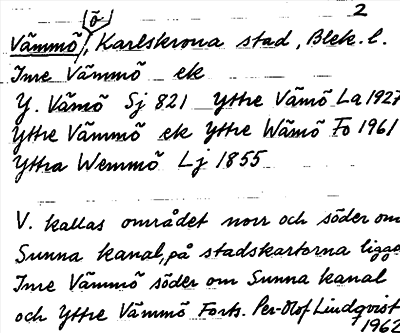 (ö)
2
Vämmö, Karlskrona stad, Blek. l.
Inre Vämmö ek
Y. Vämö Sj 821 Yttre Vämö La 1927
Yttre Vämmö ek Yttre Wämö Fo 1961
Yttra Wemmö Lj 1855
V. kallas området norr och söder om
Sunna kanal, på stadskartorna ligger
Inre Vämmö söder om Sunna kanal
och Yttre Vämmö Forts. Per-Olof Lindqvist
1962